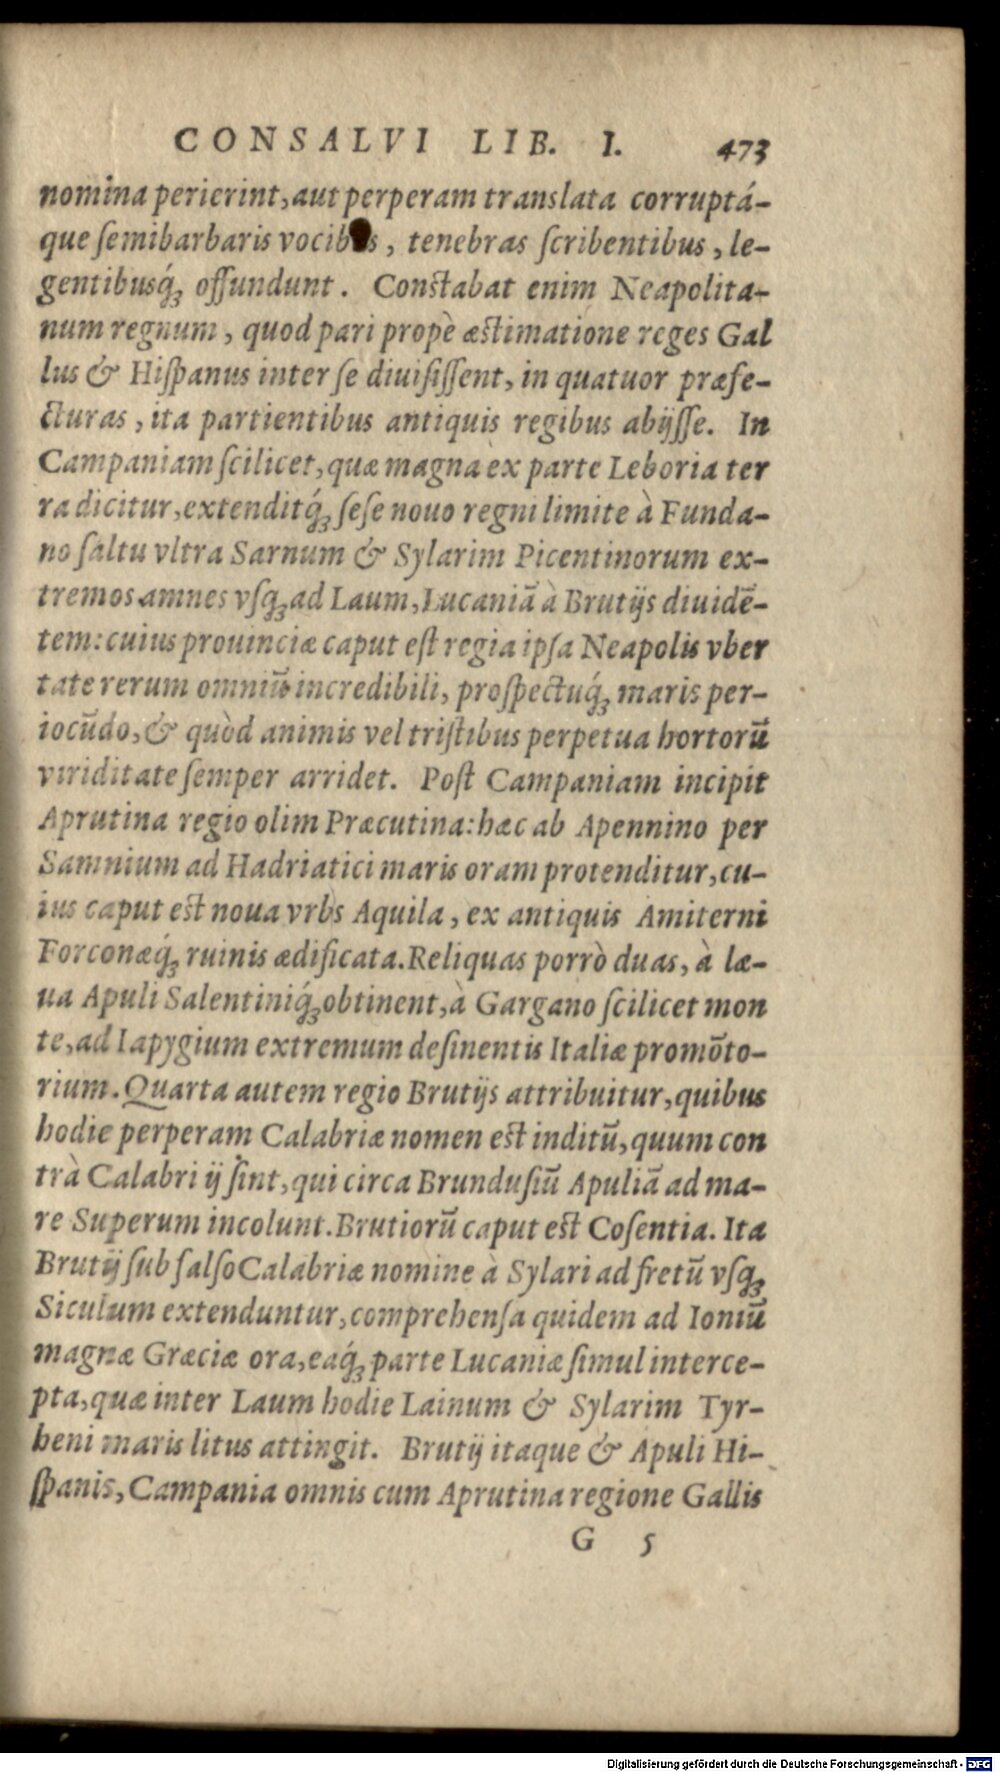 CONSALVI LIB. I. 473
nomina perierint, aut perperam translata corruptá-
que ſemibarbaris vocibus, tenebras ſcribentibus, le-
gentibusq́ꝫ offundunt. Conſtabat enim Neapolita-
num regnum, quod pari propè æſtimatione reges Gal
lus & Hiſpanus inter ſe diuiſiſſent, in quatuor præfe-
cturas, ita partientibus antiquis regibus abijſſe. In
Campaniam ſcilicet, quæ magna ex parte Leboria ter
ra dicitur, extenditq́ꝫ ſeſe nouo regni limite à Funda-
no ſaltu vltra Sarnum & Sylarim Picentinorum ex-
tremos amnes vſqꝫ ad Laum, Lucaniā à Brutijs diuidē-
tem: cuius prouinciæ caput eſt regia ipſa Neapolis vber
tate rerum omniū incredibili, proſpectuq́ꝫ maris per-
iocūdo, & quòd animis vel triſtibus perpetua hortorū
viriditate ſemper arridet. Poſt Campaniam incipit
Aprutina regio olim Præcutina: hæc ab Apennino per
Samnium ad Hadriatici maris oram protenditur, cu-
ius caput eſt noua vrbs Aquila, ex antiquis Amiterni
Forconæq́ꝫ ruinis ædificata. Reliquas porrò duas, à læ-
ua Apuli Salentiniq́ꝫ obtinent, à Gargano ſcilicet mon
te, ad Iapygium extremum deſinentis Italiæ promōto-
rium. Quarta autem regio Brutijs attribuitur, quibus
hodie perperam Calabriæ nomen eſt inditū, quum con
trà Calabri ij ſint, qui circa Brunduſiū Apuliā ad ma-
re Superum incolunt. Brutiorū caput eſt Coſentia. Ita
Brutij ſub falſo Calabriæ nomine à Sylari ad fretū vſqꝫ
Siculum extenduntur, comprehenſa quidem ad Ioniū
magnæ Græciæ ora, eaq́ꝫ parte Lucaniæ ſimul interce-
pta, quæ inter Laum hodie Lainum & Sylarim Tyr-
heni maris litus attingit. Brutij itaque & Apuli Hi-
ſpanis, Campania omnis cum Aprutina regione Gallis
G 5
Digitalisierung gefördert durch die Deutsche Forschungsgemeinschaft - DFG